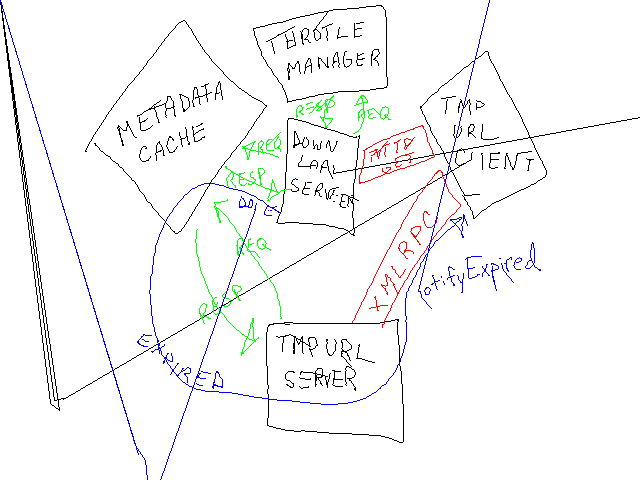 THROTLE
MANAGER
METADATA
CACHE
RESP
REQ
TMP
URL
CLIENT
DOWN
LOAD
SERVER
HTTP
GET
REQ
RESP
REQ
RESP
XMLRPC
otifyExpired
EXPIRED
TMP URL
SERVER